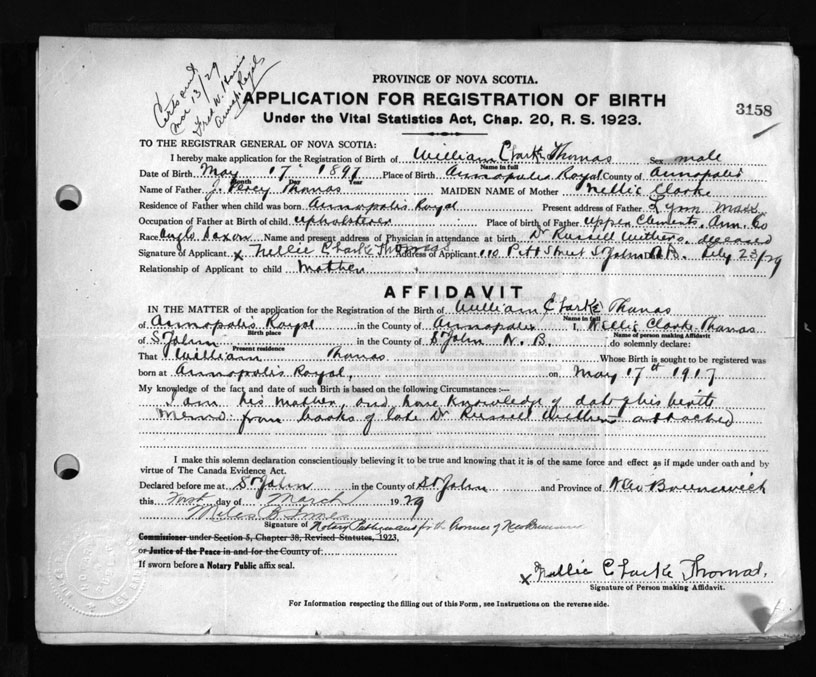 Certs and
Mar 13/29
Fred W. Harris
Annap. Royal
PROVINCE OF NOVA SCOTIA.
APPLICATION FOR REGISTRATION OF BIRTH
3158
Under the Vital Statistics Act, Chap. 20, R. S. 1923.
TO THE REGISTRAR GENERAL OF NOVA SCOTIA:
I hereby make application for the Registration of Birth of William Clarke Thomas Sex male
Name in full
Date of Birth May 17 1897 Place of Birth Annapolis Royal County of Annapolis
Month Day Year
Name of Father J. Percy Thomas MAIDEN NAME of Mother Nellie Clarke
Residence of Father when child was born Annapolis Royal Present address of Father Lynn Mass.
Occupation of Father at Birth of child upholsterer Place of birth of Father Upper Clements, Ann. Co
Race Anglo Saxon Name and present address of Physician in attendance at birth Dr Russell Withers, deceased
Signature of Applicant x Nellie Clarke Thomas Address of Applicant 110 Pitt Street St John N.B. Feby 23/29
Relationship of Applicant to child Mother
AFFIDAVIT
IN THE MATTER of the application for the Registration of the Birth of William Clarke Thomas
Name in full
of Annapolis Royal in the County of Annapolis I, Nellie Clarke Thomas
Birth place Name of person making Affidavit
of St John in the County of St John N. B. do solemnly declare:
Present residence
That William Thomas Whose Birth is sought to be registered was
born at Annapolis Royal, on May 17th 1917
My knowledge of the fact and date of such Birth is based on the following Circumstances :—
I am his mother, and have knowledge of date of his birth
Memo: from books of late Dr Russell Withers attached
I make this solemn declaration conscientiously believing it to be true and knowing that it is of the same force and effect as if made under oath and by
virtue of The Canada Evidence Act.
Declared before me at St John in the County of St John and Province of New Brunswick
this First day of March 1929
Miles B. Innes
Signature of Notary Public in and for the Province of New Brunswick
Commissioner under Section 5, Chapter 38, Revised Statutes, 1923,
or Justice of the Peace in and for the County of:
If sworn before a Notary Public affix seal.
x Nellie Clarke Thomas.
Signature of Person making Affidavit.
For Information respecting the filling out of this Form, see Instructions on the reverse side.